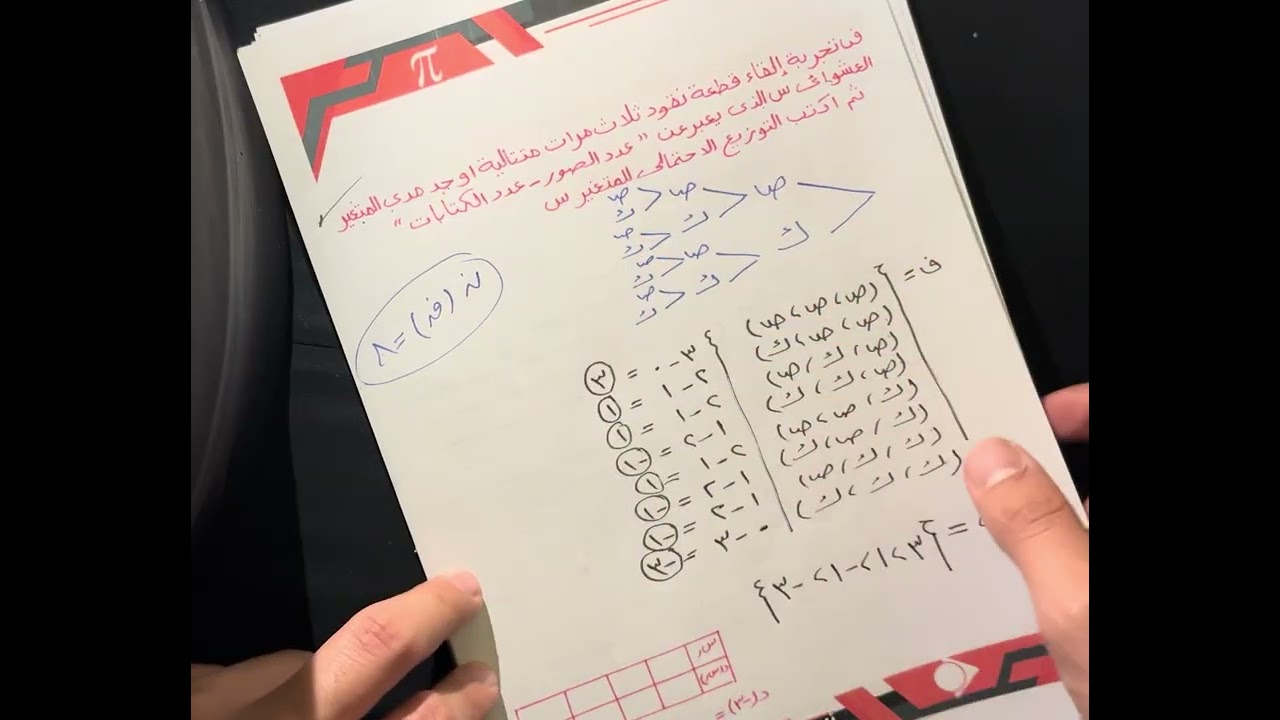 π
فى تجربة إلقاء قطعة نقود ثلاث مرات متتالية اوجد مدى المتغير
العشوائى س الذى يعبر عن " عدد الصور - عدد الكتابات "
ثم اكتب التوزيع الاحتمالى للمتغير س
ص ص ص
ك
ك ص
ك
ك ص ص
ك
ك ص
ك
ن (ف) = ٨
ف = {
(ص، ص، ص) ٣ - ٠ = ٣
(ص، ص، ك) ٢ - ١ = ١
(ص، ك، ص) ٢ - ١ = ١
(ص، ك، ك) ١ - ٢ = -١
(ك، ص، ص) ٢ - ١ = ١
(ك، ص، ك) ١ - ٢ = -١
(ك، ك، ص) ١ - ٢ = -١
(ك، ك، ك) ٠ - ٣ = -٣
= {٣، ١، -١، -٣}
سر
د(سر)
د(-٣) =